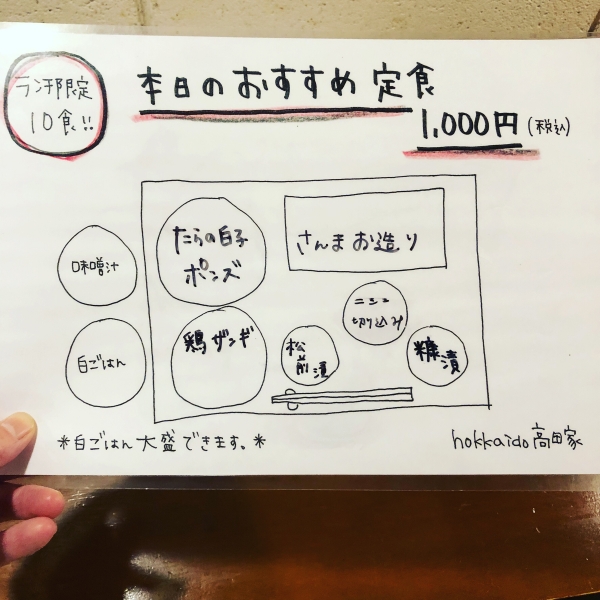 ランチ限定
10食!!
本日のおすすめ定食
1,000円(税込)
味噌汁
たらの白子
ポンズ
さんまお造り
白ごはん
鶏ザンギ
松前漬
ニシン
切り込み
糠漬
*白ごはん大盛できます。*
hokkaido高田家